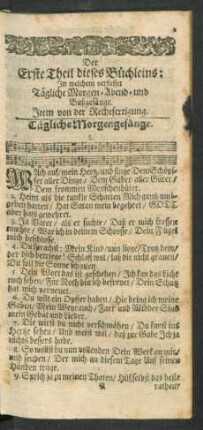 Der
Erste Theil dieses Büchleins:
In welchem verfasset
Tägliche Morgen- Abend- und
Bußgesänge.
Item von der Rechtfertigung.
Tägliche Morgengesänge.
I.
WAch auf, mein Hertz, und singe Dem Schöpf-
fer aller Dinge, Dem Geber aller Güter,
Dem frommen Menschenhüter.
2. Heint als die dunkle Schatten Mich ganz umge-
geben hatten, Hat Satan mein begehret, GOTT
aber hats gewehret.
3. Ja Vater, als er suchte, Daß er mich fressen
mochte, War ich in deinem Schoosse, Dein Flügel
mich beschlosse.
4. Du sprachst: Mein Kind, nun liege, Trotz dem,
der dich betriege: Schlaff wol, laß dir nicht grauen,
Du solt die Sonne schauen.
5. Dein Wort das ist geschehen, Ich kan das Licht
noch sehen, Für Noth bin ich befreyet, Dein Schutz
hat mich verneuet.
6. Du wilt ein Opffer haben, Hie bring ich meine
Gaben, Mein Weyrauch, Farr und Widder Sind
mein Gebät und Lieder.
7. Die wirst du nicht verschmähen, Du kanst ins
Hertze sehen, Und weist wol, daß zur Gabe Ich ja
nichts bessers habe.
8. So wollst du nun vollenden Dein Werk an mir,
und senden, Der mich an diesem Tage Auf seinen
Händen trage.
9. Sprich ja zu meinen Thaten, Hilff selbst das beste
rathen,